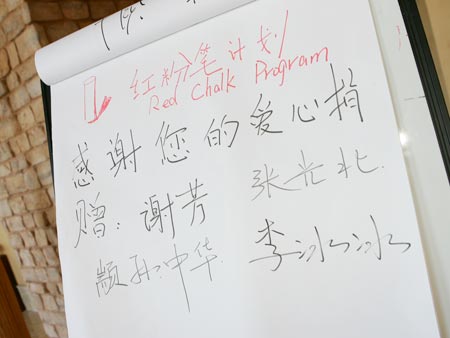 红粉笔计划
Red Chalk Program
感谢您的爱心捐
赠：谢芳 张光北
颛孙中华 李冰冰